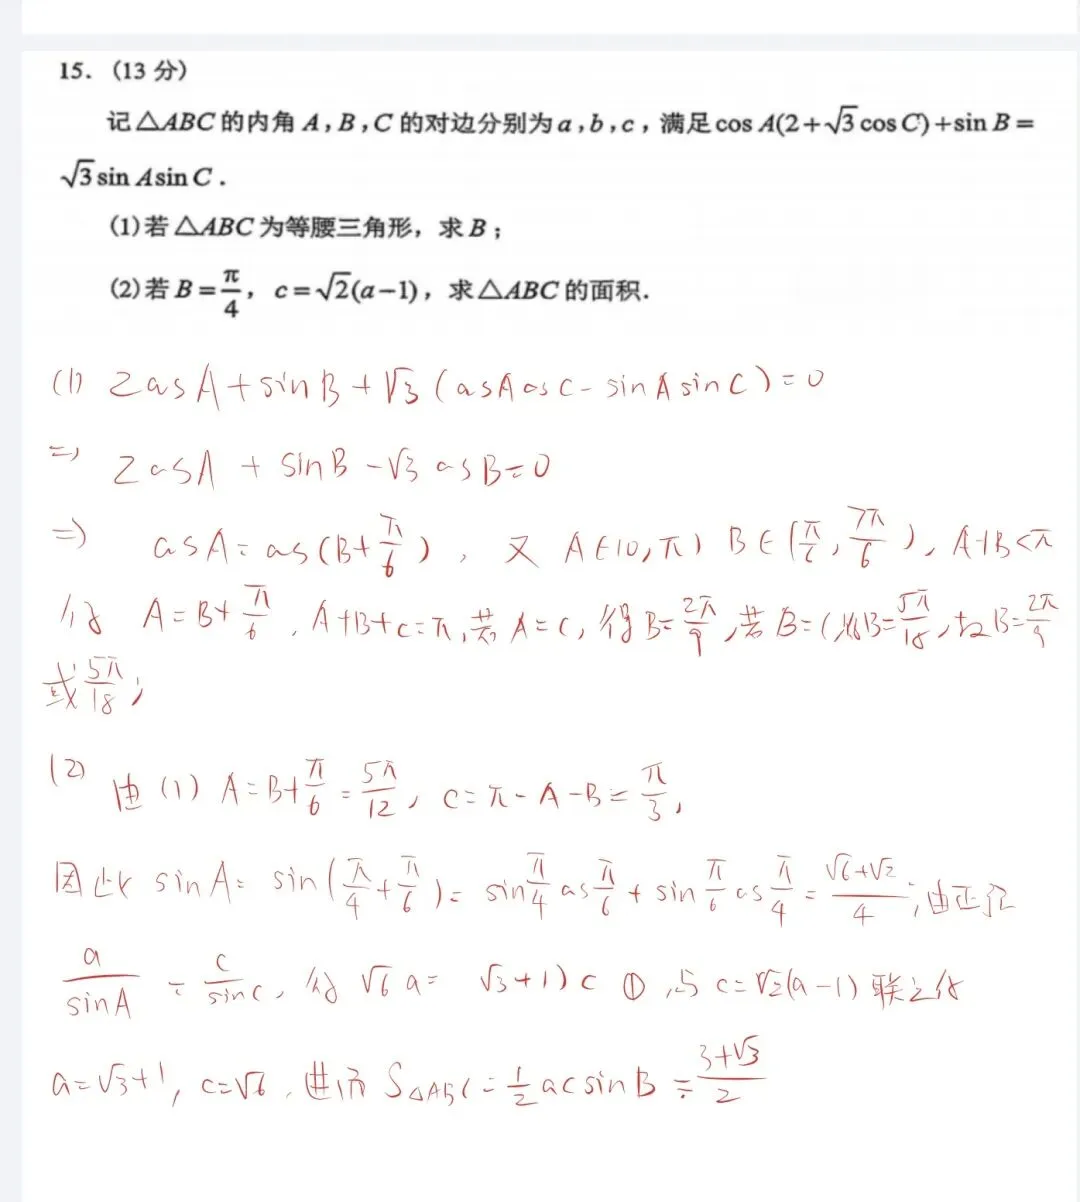 15. (13 分)
记△ABC的内角 A,B,C 的对边分别为a,b,c,满足cos A(2+√3cos C)+sin B=
√3sin Asin C.
(1)若△ABC为等腰三角形,求B;
(2)若B=π/4, c=√2(a-1),求△ABC的面积.
(1) 2cosA+sinB+√3(cosAcosC-sinAsinC)=0
=> 2cosA+sinB-√3cosB=0
=> cosA=cos(B+π/6), 又 A∈(0,π) B∈(π/6,7π/6), A+B<π
得 A=B+π/6, A+B+C=π,若A=C,得B=2π/9,若B=C,则B=5π/18,故B=2π/9
或5π/18;
(2) 由(1) A=B+π/6=5π/12, C=π-A-B=π/3,
因此 sinA=sin(π/4+π/6)=sinπ/4cosπ/6+sinπ/6cosπ/4=(√6+√2)/4;由正弦
a/sinA=c/sinC, 得 √6a= √3+1)c ①,与c=√2(a-1)联立得
a=√3+1, c=√6, 进而 S△ABC=1/2acsinB=(3+√3)/2